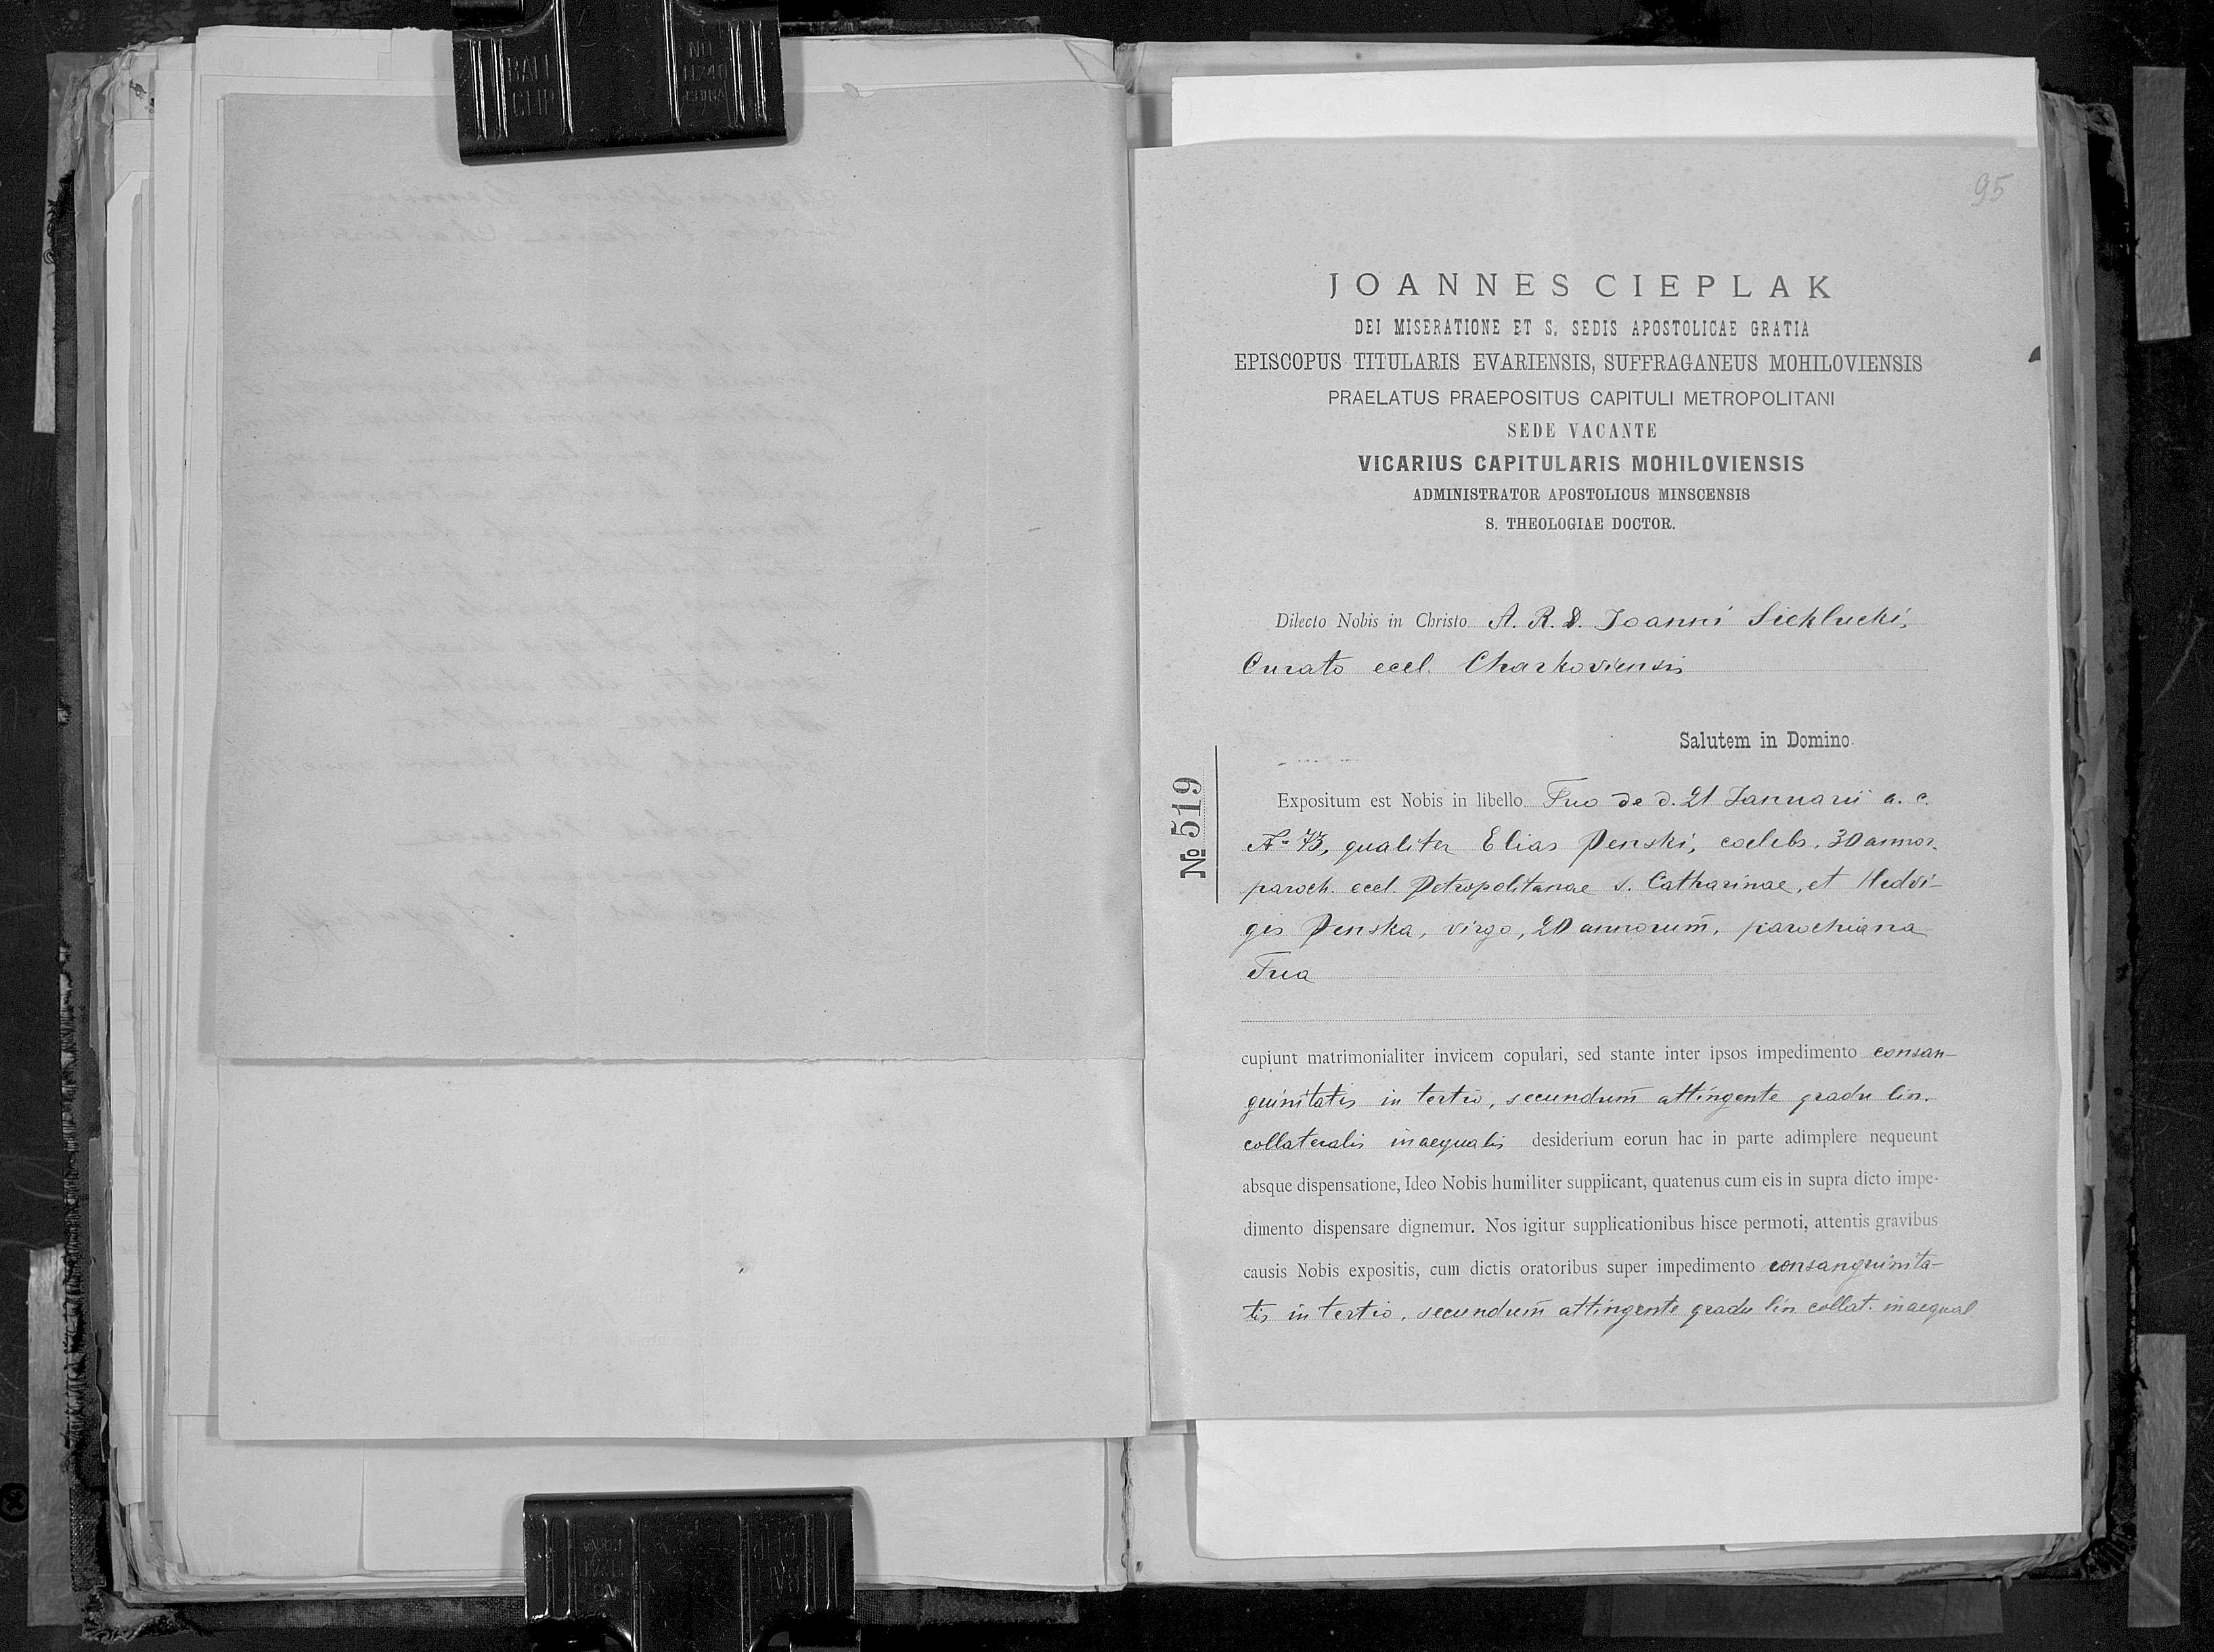 95
JOANNES CIEPLAK
DEI MISERATIONE ET S. SEDIS APOSTOLICAE GRATIA
EPISCOPUS TITULARIS EVARIENSIS, SUFFRAGANEUS MOHILOVIENSIS
PRAELATUS PRAEPOSITUS CAPITULI METROPOLITANI
SEDE VACANTE
VICARIUS CAPITULARIS MOHILOVIENSIS
ADMINISTRATOR APOSTOLICUS MINSCENSIS
S. THEOLOGIAE DOCTOR.
Dilecto Nobis in Christo A. R. D. Joanni Sieklucki,
Curato eccl. Charkoviensis
Salutem in Domino.
№ 519
Expositum est Nobis in libello Tuo de d. 21 Januarii a. c.
№ 73, qualiter Elias Penski, coelebs, 30 annor.
paroch. eccl. Petropolitanae S. Catharinae, et Hedvi-
gis Penska, virgo, 20 annorum̄, parochiana
Tua
cupiunt matrimonialiter invicem copulari, sed stante inter ipsos impedimento consan-
guinitatis in tertio, secundum̄ attingente gradu lin.
collateralis inaequalis desiderium eorun hac in parte adimplere nequeunt
absque dispensatione, Ideo Nobis humiliter suppiicant, quatenus cum eis in supra dicto impe-
dimento dispensare dignemur. Nos igitur supplicationibus hisce permoti, attentis gravibus
causis Nobis expositis, cum dictis oratoribus super impedimento consanguinita-
tis in tertio, secundum̄ attingente gradu lin. collat. inaequal